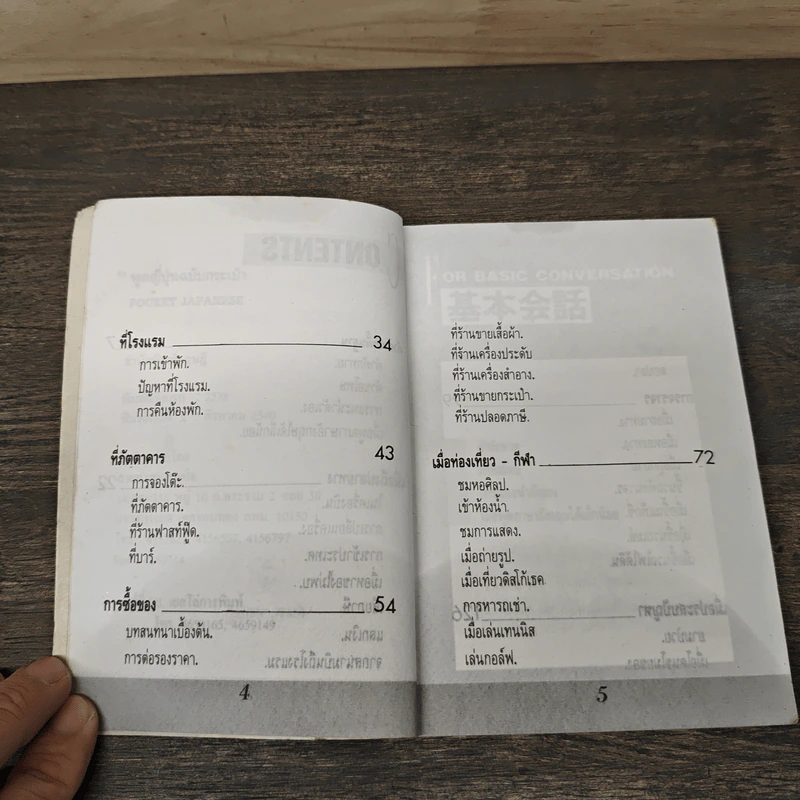 ที่โรงแรม 34
การเข้าพัก.
ปัญหาที่โรงแรม.
การคืนห้องพัก.
ที่ภัตตาคาร 43
การจองโต๊ะ.
ที่ภัตตาคาร.
ที่ร้านฟาสท์ฟู๊ด.
ที่บาร์.
การซื้อของ 54
บทสนทนาเบื้องต้น.
การต่อรองราคา.
4
OR BASIC CONVERSATION
基本会話
ที่ร้านขายเสื้อผ้า.
ที่ร้านเครื่องประดับ
ที่ร้านเครื่องสำอาง.
ที่ร้านขายกระเป๋า.
ที่ร้านปลอดภาษี.
เมื่อท่องเที่ยว - กีฬา 72
ชมหอศิลป.
เข้าห้องน้ำ.
ชมการแสดง.
เมื่อถ่ายรูป.
เมื่อเที่ยวดิสโก้เธค
การหารถเช่า.
เมื่อเล่นเทนนิส
เล่นกอล์ฟ.
5